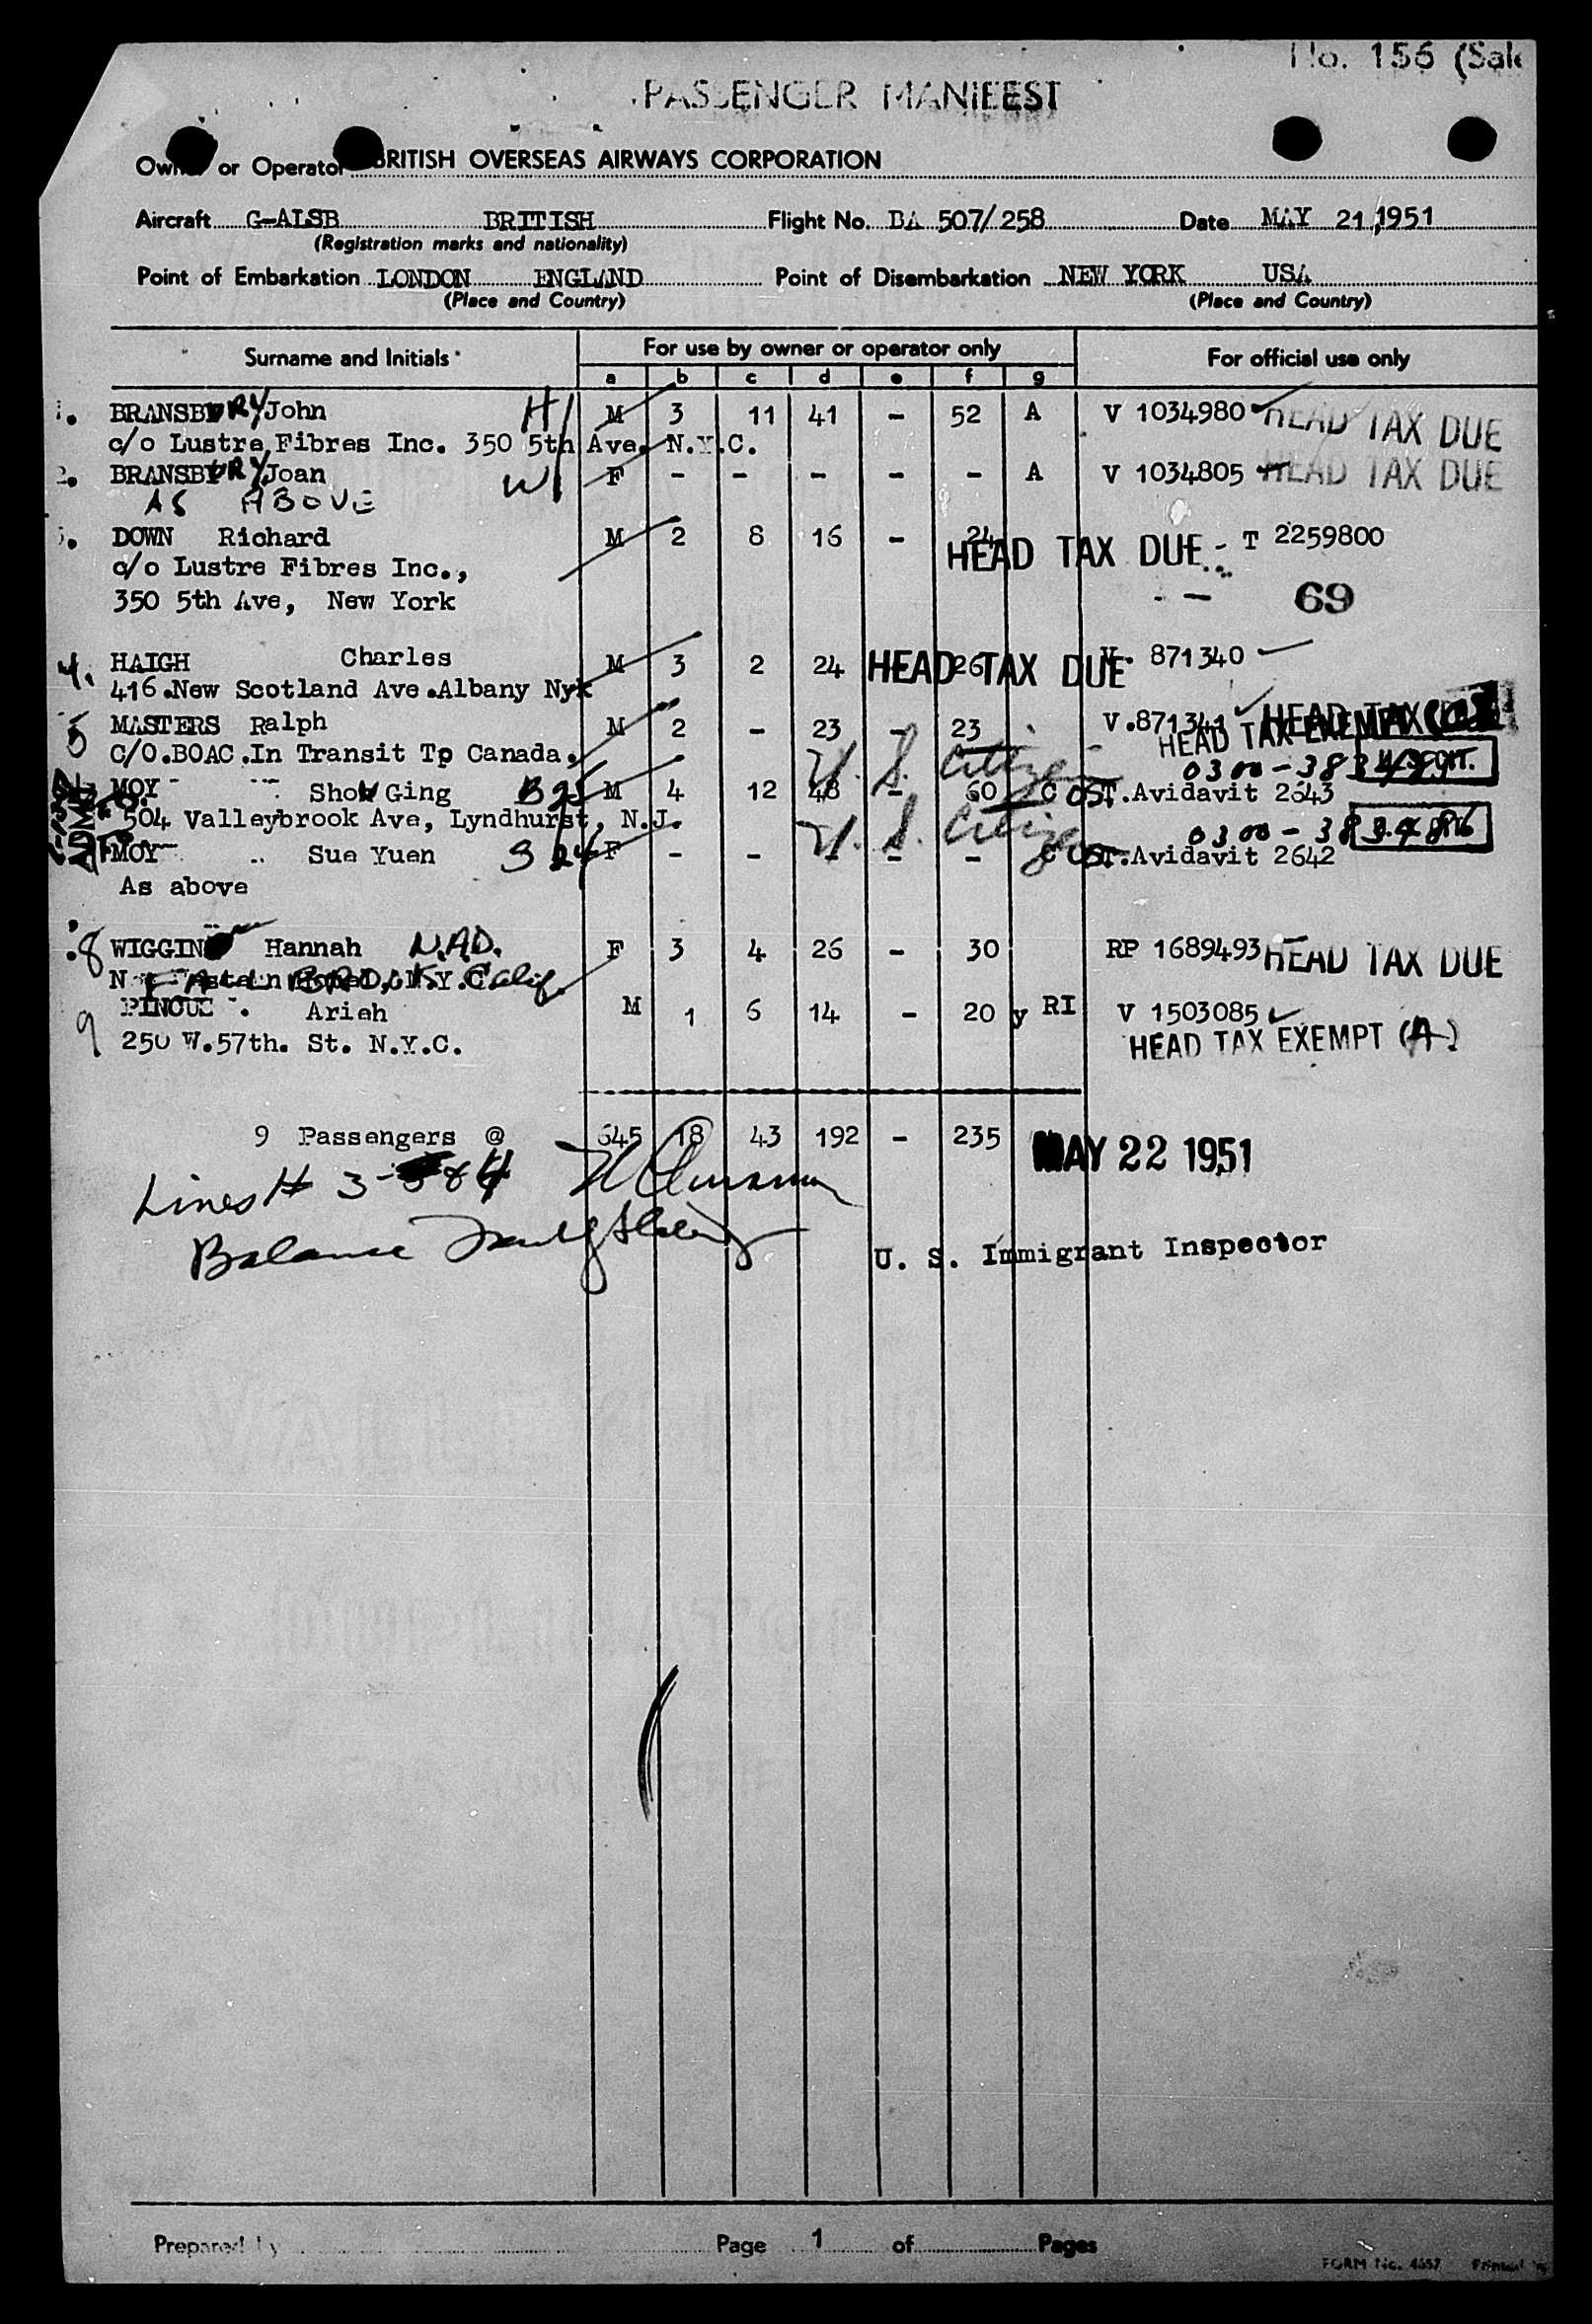 No. 156 (Sale
PASSENGER MANIFEST
Owner or Operator BRITISH OVERSEAS AIRWAYS CORPORATION
Aircraft G-ALSB BRITISH Flight No. BA 507/258 Date MAY 21,1951
(Registration marks and nationality)
Point of Embarkation LONDON ENGLAND Point of Disembarkation NEW YORK USA
(Place and Country) (Place and Country)
Surname and Initials For use by owner or operator only For official use only
a b c d e f g
1. BRANSBURY John H M 3 11 41 - 52 A V 1034980 HEAD TAX DUE
c/o Lustre Fibres Inc. 350 5th Ave. N.Y.C.
2. BRANSBURY Joan W F - - - - - A V 1034805 HEAD TAX DUE
AS ABOVE
3. DOWN Richard M 2 8 16 - 24 HEAD TAX DUE - T 2259800
c/o Lustre Fibres Inc.,
350 5th Ave, New York 69
4. HAIGH Charles M 3 2 24 26 HEAD TAX DUE V. 871340
416.New Scotland Ave.Albany Nyk
5 MASTERS Ralph M 2 - 23 - 23 V.871341 HEAD TAX
C/O.BOAC.In Transit To Canada. HEAD TAX EXEMPT
U. S. Citizen 0300-38
MOY Show Ging B 25 M 4 12 48 - 60 C OST.Avidavit 2643
504 Valleybrook Ave, Lyndhurst, N.J.
U. S. Citizen 0300-383486
MOY Sue Yuen S 24 F - - - - - C OST.Avidavit 2642
As above
8 WIGGIN Hannah N.A.D. F 3 4 26 - 30 RP 1689493 HEAD TAX DUE
FALLBROOK, Calif.
9 PINCUS Arieh M 1 6 14 - 20 y RI V 1503085
250 W.57th. St. N.Y.C. HEAD TAX EXEMPT (A)
9 Passengers @ 645 18 43 192 - 235 MAY 22 1951
Lines # 3- & 4
Balance
U. S. Immigrant Inspector
Prepared by Page 1 of Pages
FORM No. 4657 Printed